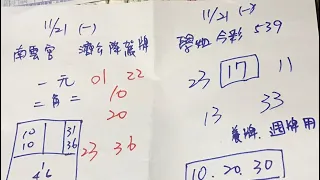 11/21 (一)
南雲宮 濟公降藏牌
一元 01 22
二角二 10
20
10 31
10 36
23 36
1
46
11/21 (一)
今彩 539
23 17 11
13 33
養牌、週牌用
10.20.30